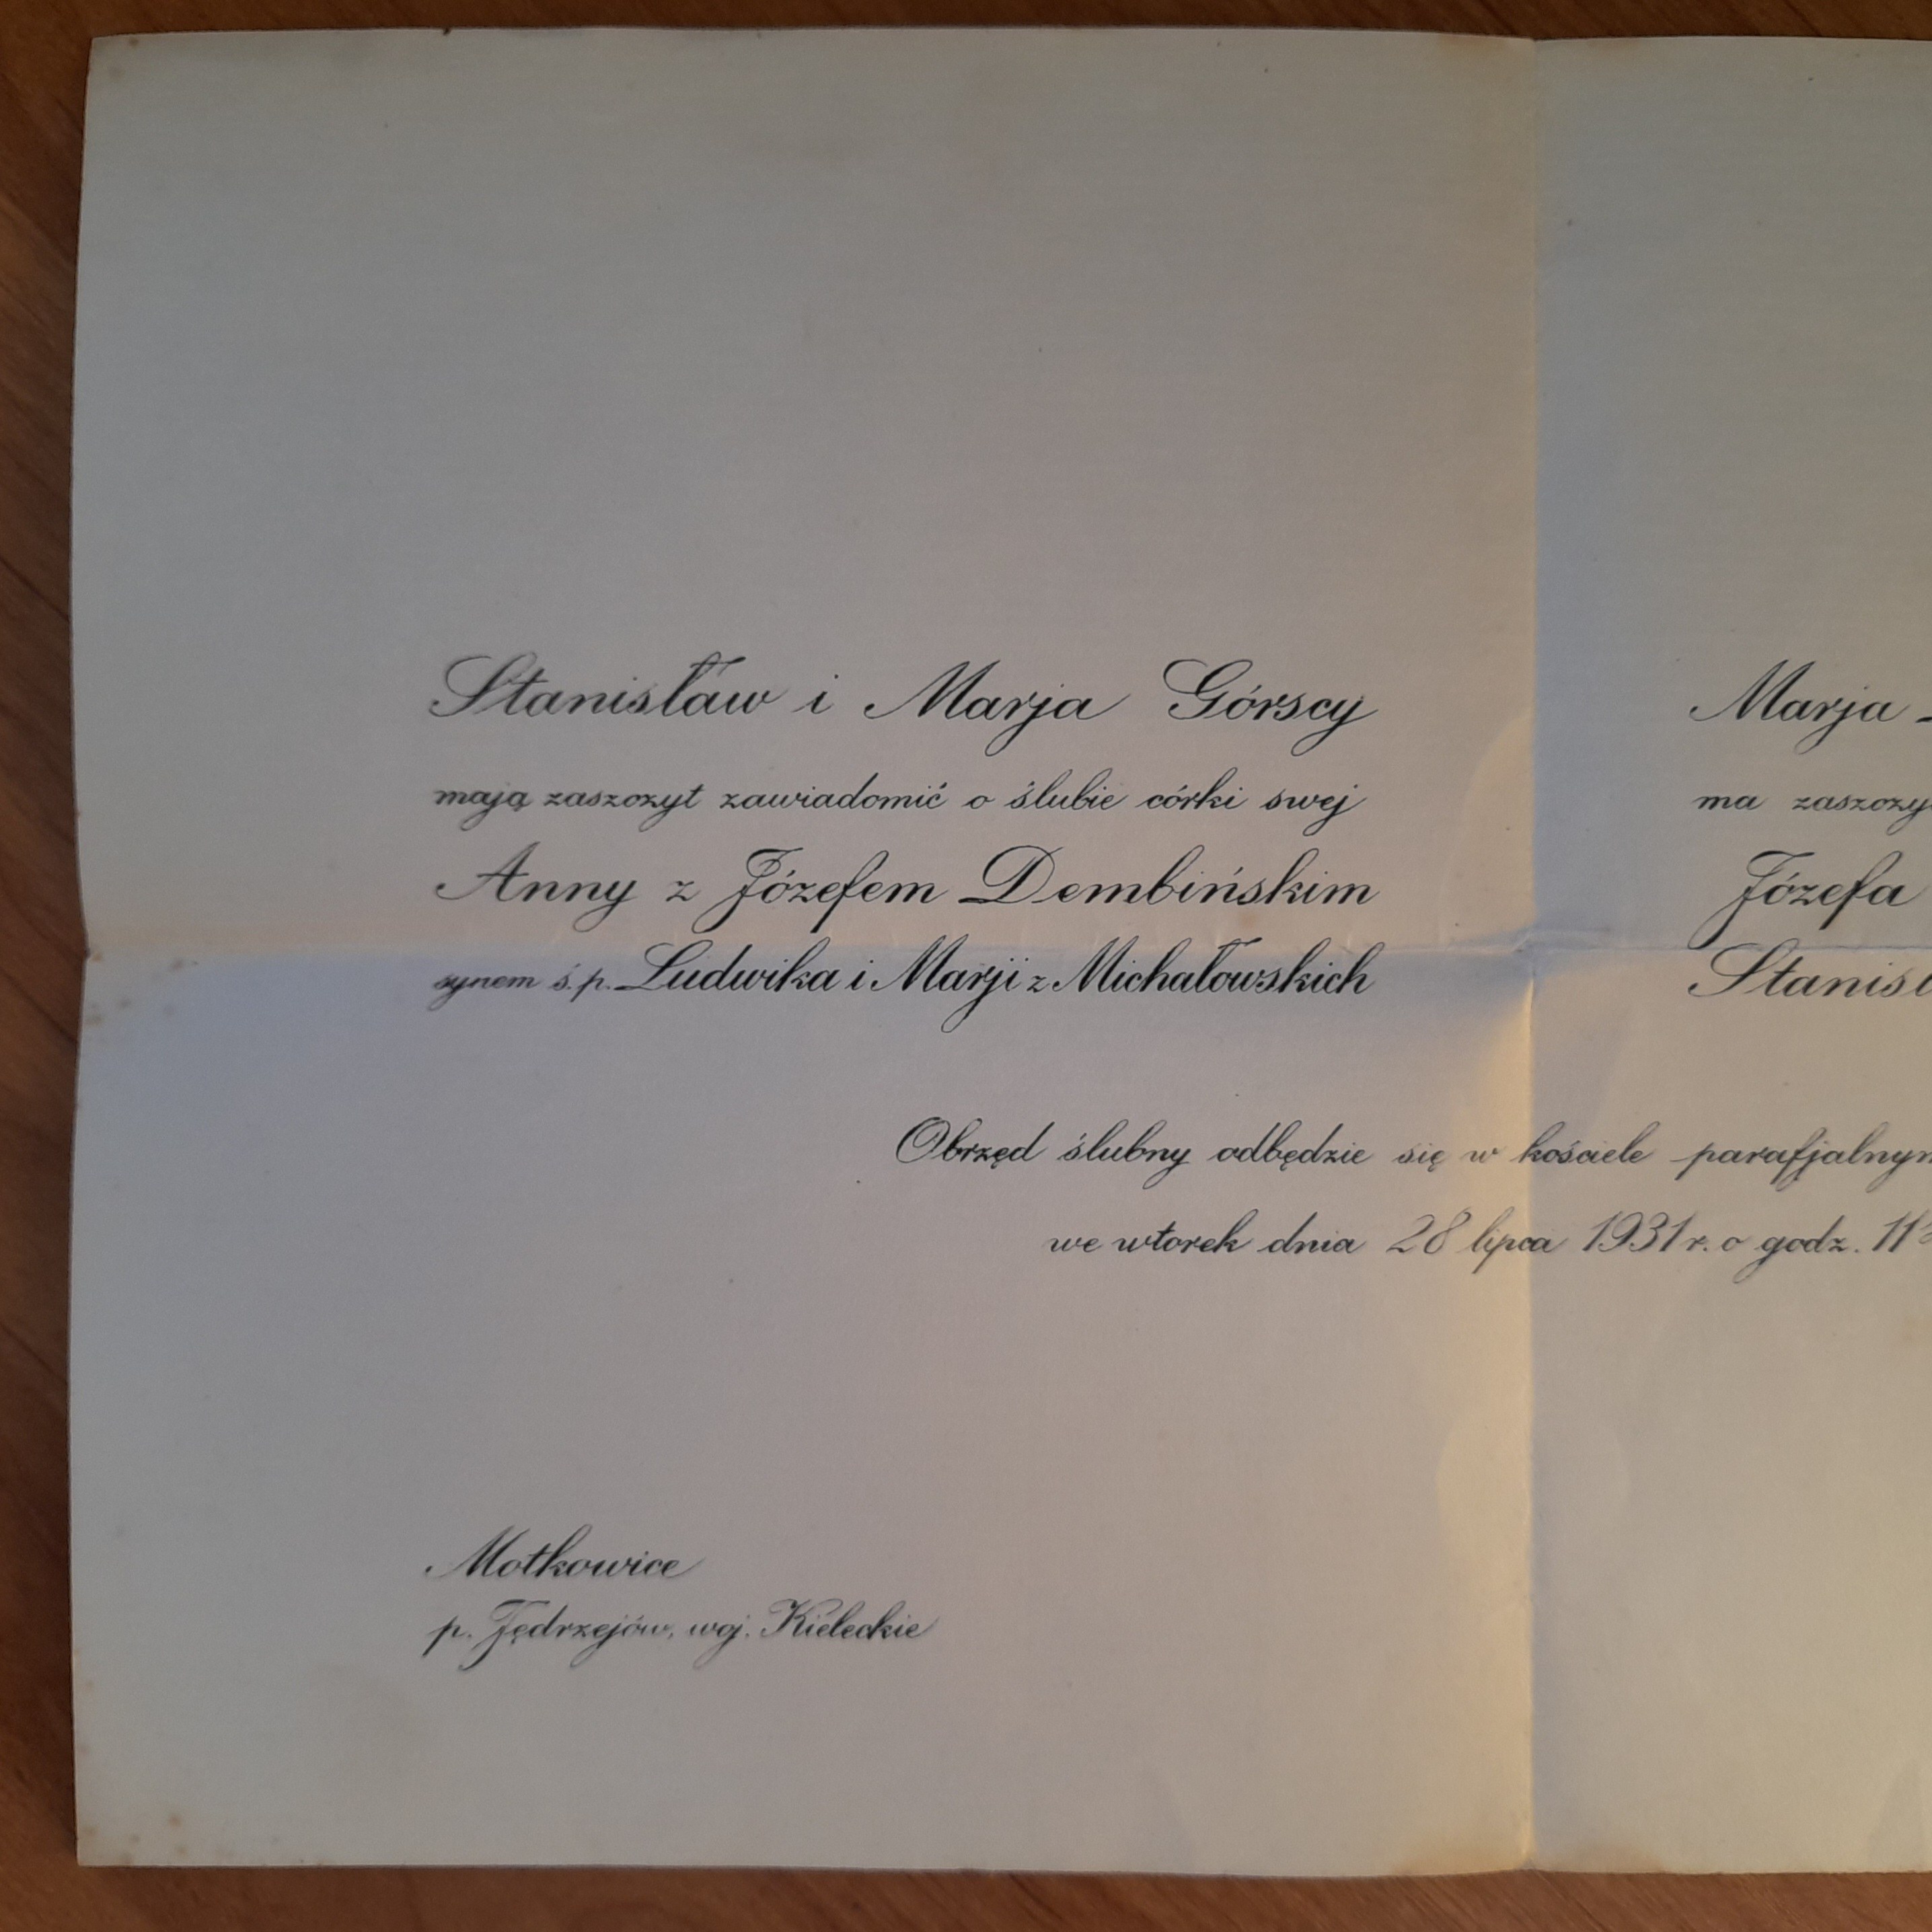 Stanisław i Marja Górscy
mają zaszczyt zawiadomić o ślubie córki swej
Anny z Józefem Dembińskim
synem ś.p. Ludwika i Marji z Michałowskich
Marja
ma
Józefa
Obrzęd ślubny odbędzie się w kościele parafjalnym
we wtorek dnia 28 lipca 1931 r. o godz. 11
Motkowice
p. Jędrzejów, woj. Kieleckie